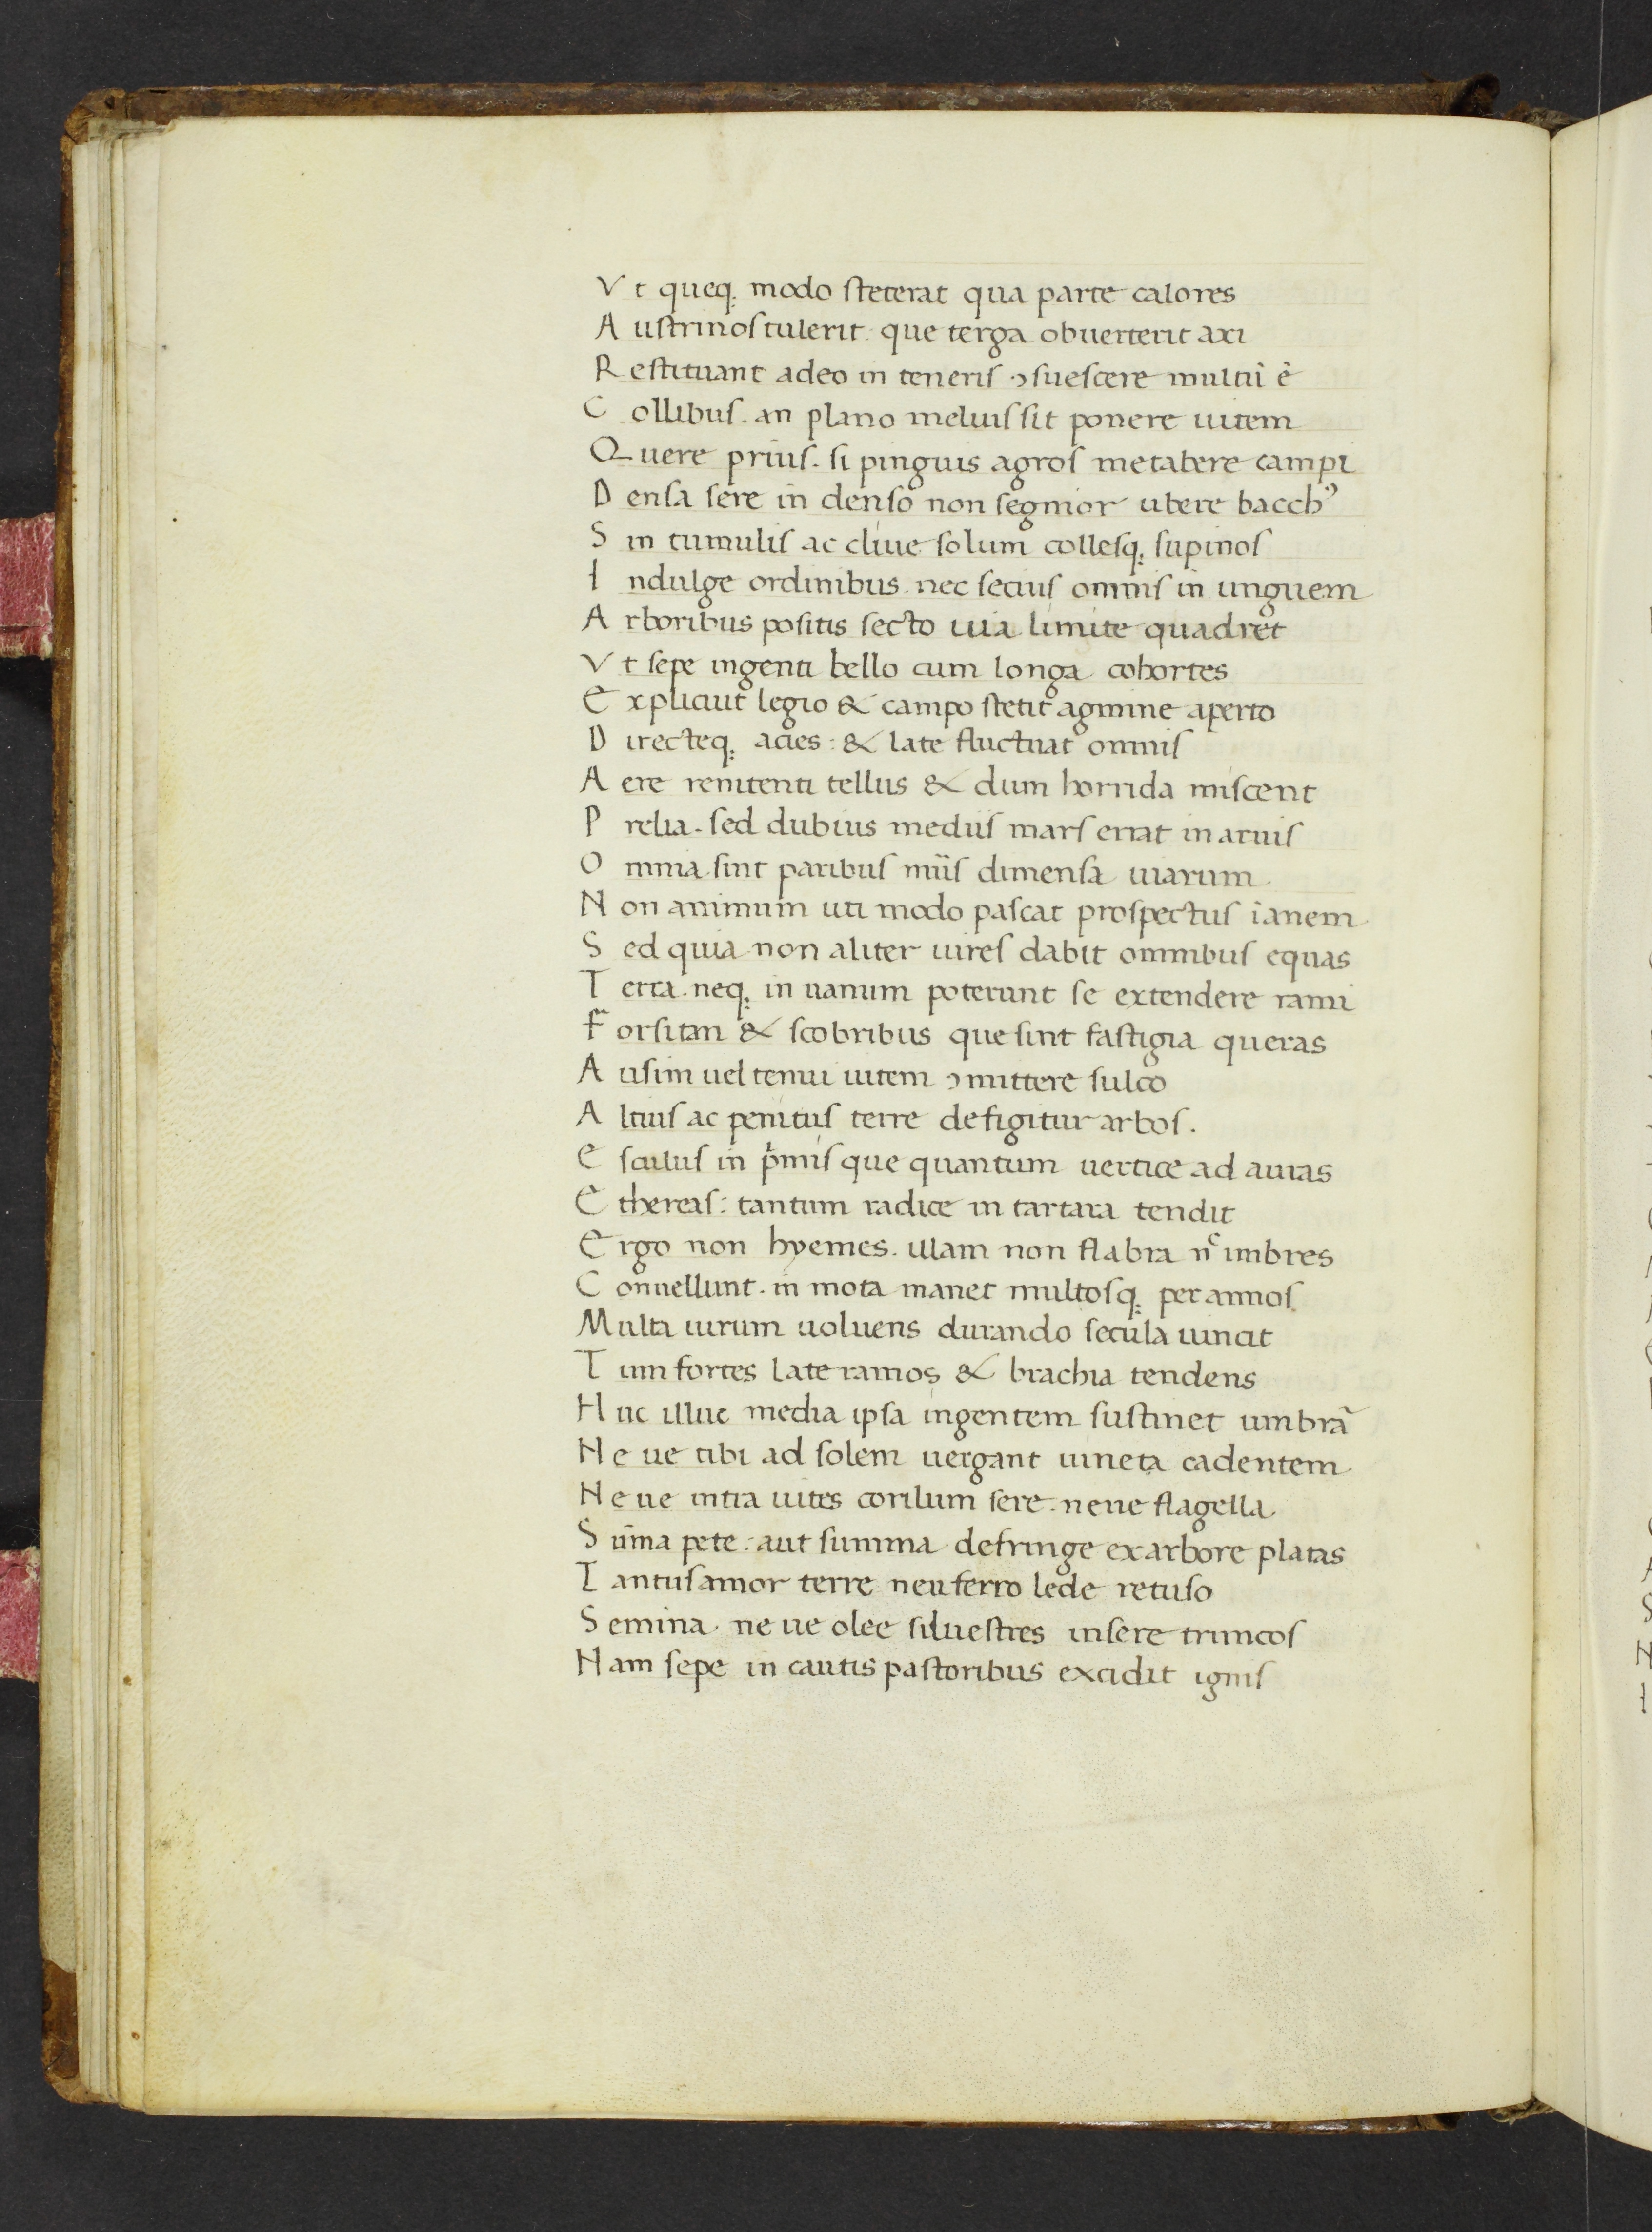 Vt queq; modo steterat qua parte calores
Austrinos tulerit que terga obuerterit axi
Restituant adeo in teneris ɔsuescere multū ē
Collibus. an plano melius sit ponere uitem
Quere prius. si pinguis agros metabere campi
Densa sere in denso non segnior ubere bacchꝰ
Sin tumulis ac cliue solum collesq; supinos
Indulge ordinibus. nec secius omnis in unguem
Arboribus positis secto uia limite quadret
Vt sepe ingenti bello cum longa cohortes
Explicuit legio & campo stetit agmine aperto
Directeq; acies: & late fluctuat omnis
Aere renitenti tellus & dum horrida miscent
Prelia. sed dubius medius mars errat in aruis
Omnia sint paribus nūis dimensa uiarum
Non animum uti modo pascat prospectus īanem
Sed quia non aliter uires dabit omnibus equas
Terra. neq; in uanum poterunt se extendere rami
Forsitan & scobribus que sint fastigia queras
Ausim uel tenui uitem ɔmittere sulco
Altius ac penitus terre defigitur arbos.
Esculus in pͥmis que quantum uertice ad auras
Ethereas: tantum radice in tartara tendit
Ergo non hyemes. illam non flabra nͨ imbres
Conuellunt. in mota manet multosq; per annos
Multa uirum uoluens durando secula uincit
Tum fortes late ramos & brachia tendens
Huc illuc media ipsa ingentem sustinet umbrā
Ne ue tibi ad solem uergant uineta cadentem
Ne ue intra uites corilum sere. neue flagella
Sūma pete: aut summa defringe ex arbore platas
Tantus amor terre neu ferro lede retuso
Semina. ne ue olee siluestres insere truncos
Nam sepe in cautis pastoribus excidit ignis